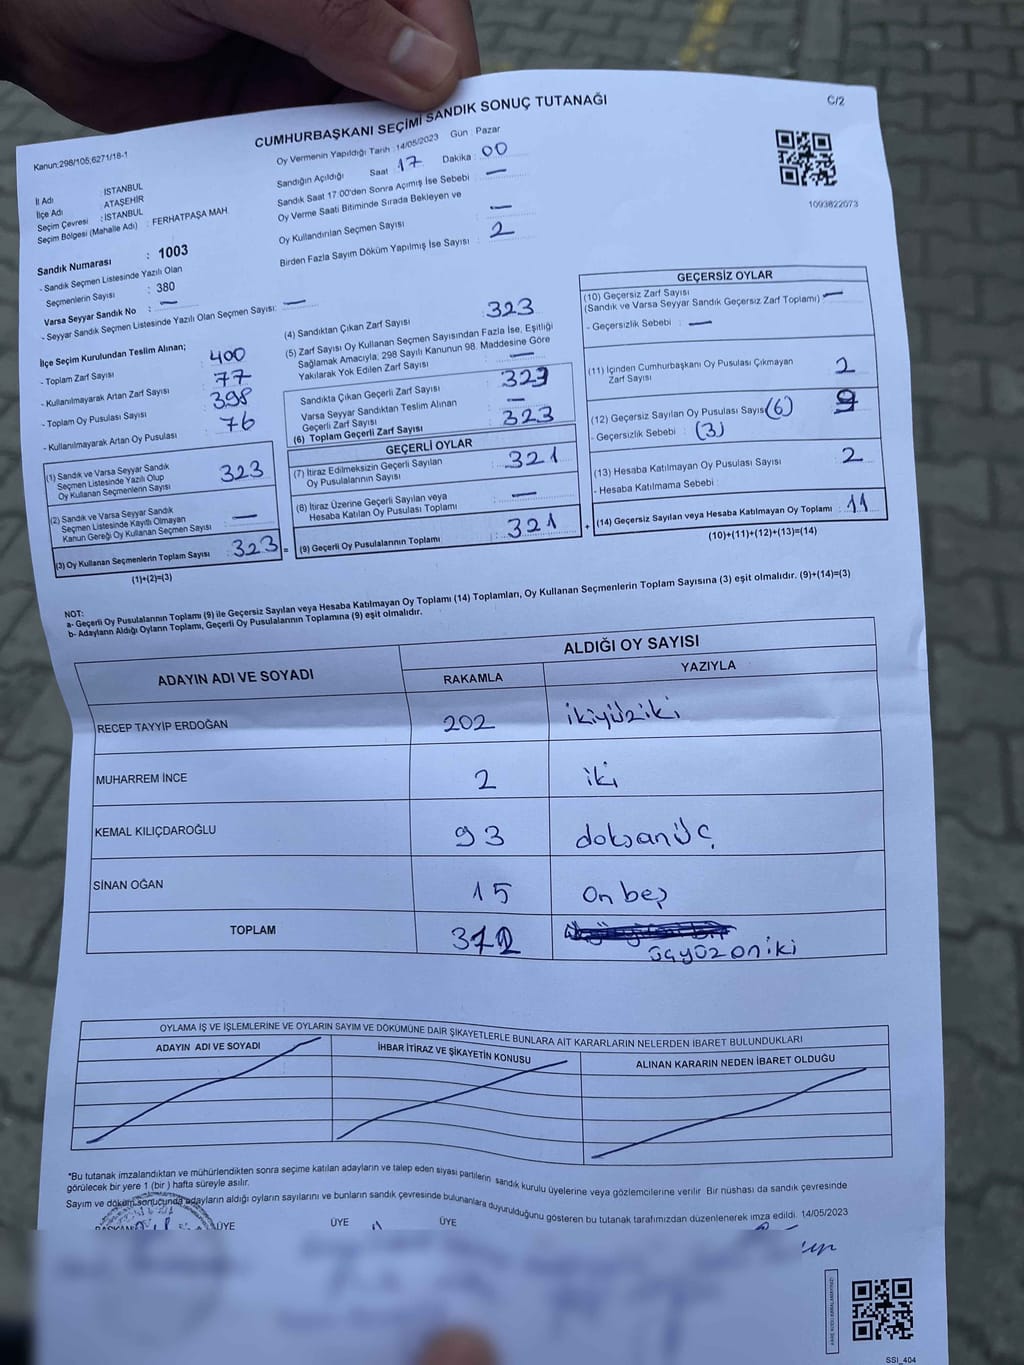 CUMHURBAŞKANI SEÇİMİ SANDIK SONUÇ TUTANAĞI
C/2
Kanun:298/105,6271/18-1
Oy Vermenin Yapıldığı Tarih :14/05/2023 Gün : Pazar
Sandığın Açıldığı Saat : 17 Dakika : 00
Sandık Saat 17.00'den Sonra Açımış İse Sebebi : —
Oy Verme Saati Bitiminde Sırada Bekleyen ve
Oy Kullandırılan Seçmen Sayısı : —
Birden Fazla Sayım Döküm Yapılmış İse Sayısı : 2
1093822073
İl Adı : İSTANBUL
İlçe Adı : ATAŞEHİR
Seçim Çevresi : İSTANBUL
Seçim Bölgesi (Mahalle Adı) : FERHATPAŞA MAH
Sandık Numarası : 1003
- Sandık Seçmen Listesinde Yazılı Olan
Seçmenlerin Sayısı : 380
Varsa Seyyar Sandık No : —
- Seyyar Sandık Seçmen Listesinde Yazılı Olan Seçmen Sayısı: —
İlçe Seçim Kurulundan Teslim Alınan;
- Toplam Zarf Sayısı : 400
- Kullanılmayarak Artan Zarf Sayısı : 77
- Toplam Oy Pusulası Sayısı : 398
- Kullanılmayarak Artan Oy Pusulası : 76
(1) Sandık ve Varsa Seyyar Sandık
Seçmen Listesinde Yazılı Olup
Oy Kullanan Seçmenlerin Sayısı : 323
(2) Sandık ve Varsa Seyyar Sandık
Seçmen Listesinde Kayıtlı Olmayan
Kanun Gereği Oy Kullanan Seçmen Sayısı : —
(3) Oy Kullanan Seçmenlerin Toplam Sayısı : 323
(1)+(2)=(3)
(4) Sandıktan Çıkan Zarf Sayısı : 323
(5) Zarf Sayısı Oy Kullanan Seçmen Sayısından Fazla İse, Eşitliği
Sağlamak Amacıyla, 298 Sayılı Kanunun 98. Maddesine Göre
Yakılarak Yok Edilen Zarf Sayısı : —
Sandıkta Çıkan Geçerli Zarf Sayısı : 323
Varsa Seyyar Sandıktan Teslim Alınan
Geçerli Zarf Sayısı : —
(6) Toplam Geçerli Zarf Sayısı : 323
=
GEÇERLİ OYLAR
(7) İtiraz Edilmeksizin Geçerli Sayılan
Oy Pusulalarının Sayısı : 321
(8) İtiraz Üzerine Geçerli Sayılan veya
Hesaba Katılan Oy Pusulası Toplamı : —
(9) Geçerli Oy Pusulalarının Toplamı : 321
+
GEÇERSİZ OYLAR
(10) Geçersiz Zarf Sayısı : —
(Sandık ve Varsa Seyyar Sandık Geçersiz Zarf Toplamı)
- Geçersizlik Sebebi : —
(11) İçinden Cumhurbaşkanı Oy Pusulası Çıkmayan
Zarf Sayısı : 2
(12) Geçersiz Sayılan Oy Pusulası Sayısı (6) 9
- Geçersizlik Sebebi : (3)
(13) Hesaba Katılmayan Oy Pusulası Sayısı : 2
- Hesaba Katılmama Sebebi :
(14) Geçersiz Sayılan veya Hesaba Katılmayan Oy Toplamı : 11
(10)+(11)+(12)+(13)=(14)
NOT:
a- Geçerli Oy Pusulalarının Toplamı (9) ile Geçersiz Sayılan veya Hesaba Katılmayan Oy Toplamı (14) Toplamları, Oy Kullanan Seçmenlerin Toplam Sayısına (3) eşit olmalıdır. (9)+(14)=(3)
b- Adayların Aldığı Oyların Toplamı, Geçerli Oy Pusulalarının Toplamına (9) eşit olmalıdır.
ADAYIN ADI VE SOYADI
ALDIĞI OY SAYISI
RAKAMLA YAZIYLA
RECEP TAYYİP ERDOĞAN 202 ikiyüziki
MUHARREM İNCE 2 iki
KEMAL KILIÇDAROĞLU 93 doksanüç
SİNAN OĞAN 15 on beş
TOPLAM 312 üçyüzoniki
OYLAMA İŞ VE İŞLEMLERİNE VE OYLARIN SAYIM VE DÖKÜMÜNE DAİR ŞİKAYETLERLE BUNLARA AİT KARARLARIN NELERDEN İBARET BULUNDUKLARI
ADAYIN ADI VE SOYADI İHBAR İTİRAZ VE ŞİKAYETİN KONUSU ALINAN KARARIN NEDEN İBARET OLDUĞU
*Bu tutanak imzalandıktan ve mühürlendikten sonra seçime katılan adayların ve talep eden siyasi partilerin sandık kurulu üyelerine veya gözlemcilerine verilir. Bir nüshası da sandık çevresinde
görülecek bir yere 1 (bir ) hafta süreyle asılır.
Sayım ve döküm sonucunda adayların aldığı oyların sayılarını ve bunların sandık çevresinde bulunanlara duyurulduğunu gösteren bu tutanak tarafımızdan düzenlenerek imza edildi. 14/05/2023
BAŞKAN ÜYE ÜYE ÜYE
SSI_404